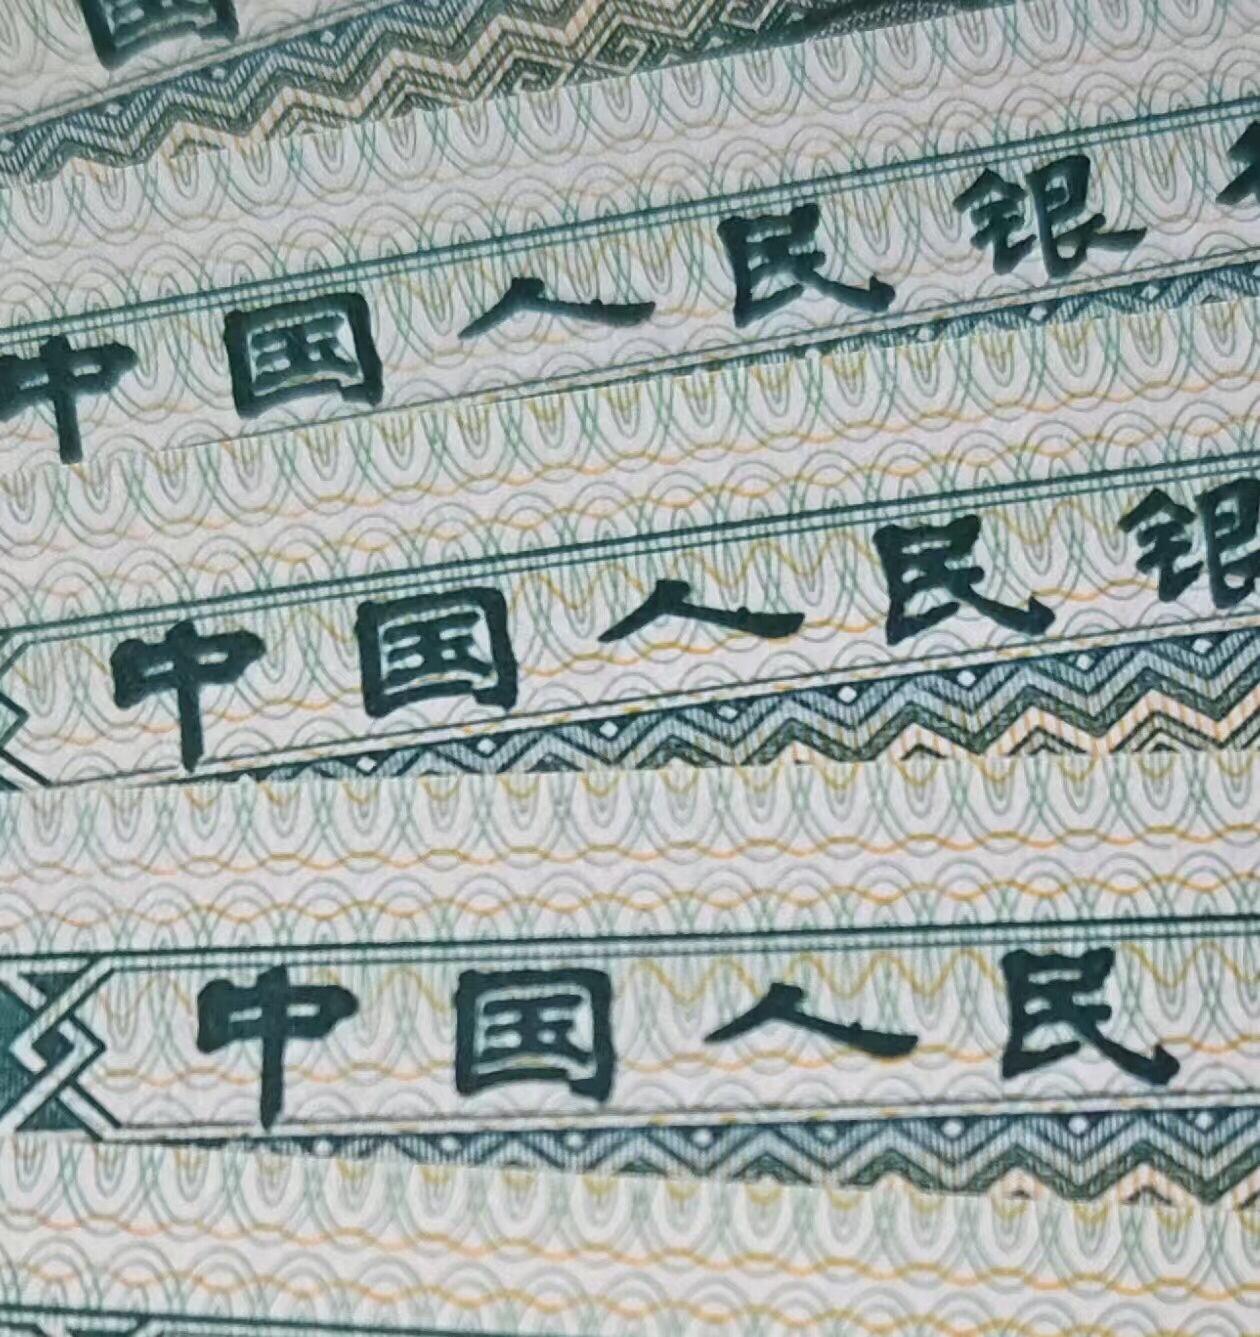 国
中国人民银行
中国人民银
中国人民